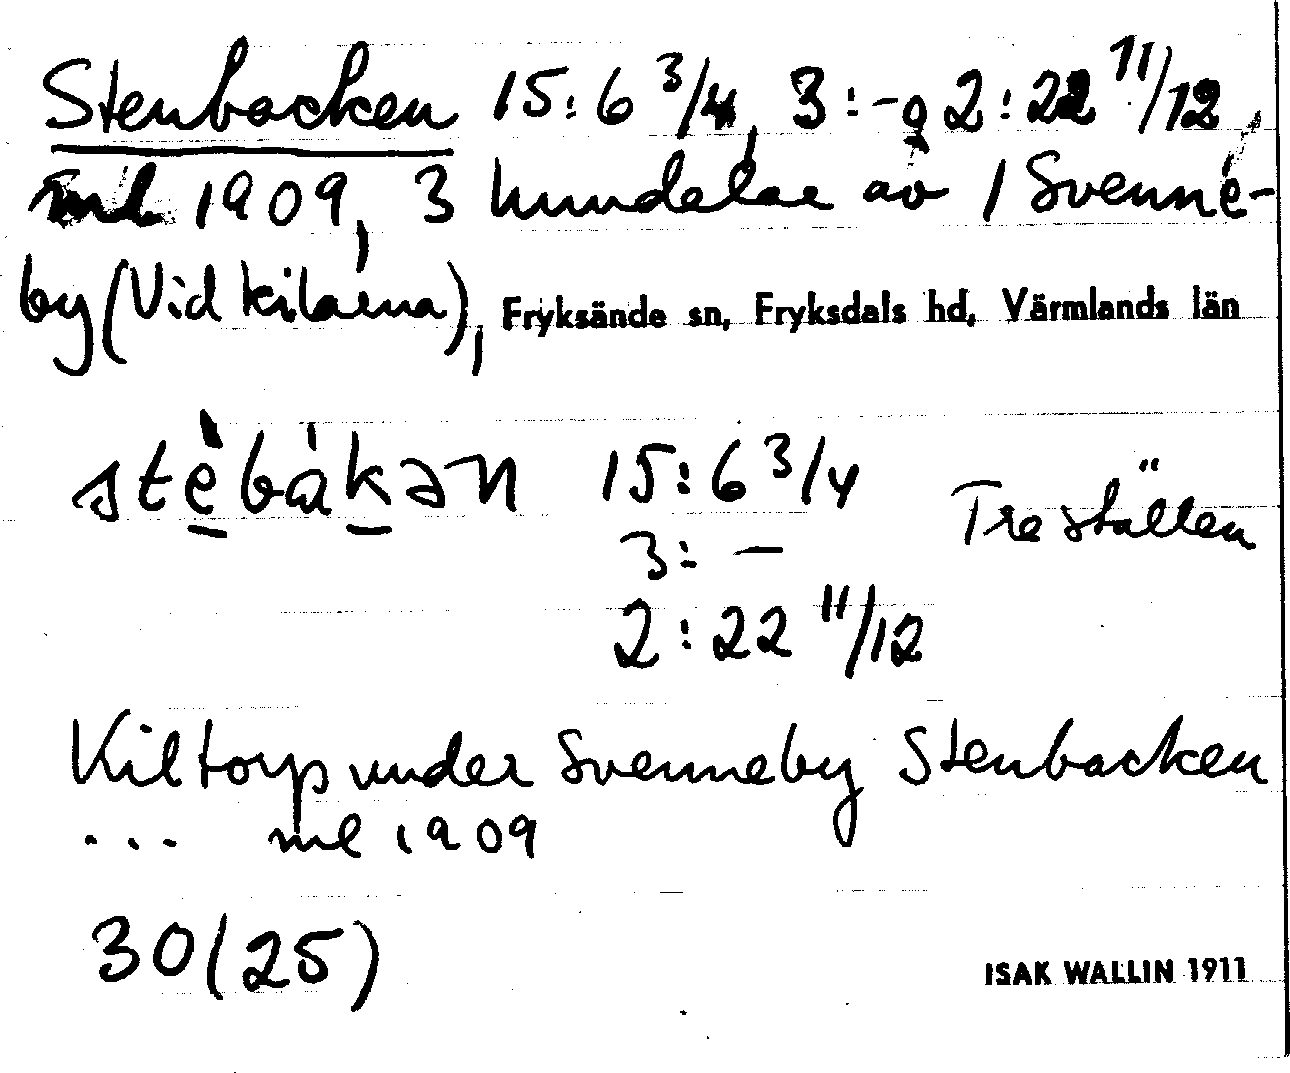 Stenbacken 15:6 3/4, 3:- o 2:22 11/12,
ml 1909, 3 hundelar av 1 Svenne-
by (Vid kilarna), Fryksände sn, Fryksdals hd, Värmlands län
stèbákən 15:6 3/4 Tre ställen
3: –
2:22 11/12
Kiltorp under Svenneby Stenbacken
... ml 1909
30(25)
ISAK WALLIN 1911